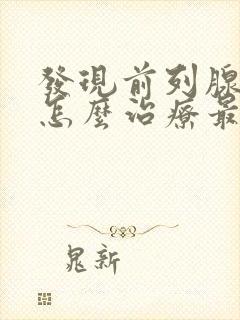 發現前列腺
怎麼治療最
晁新